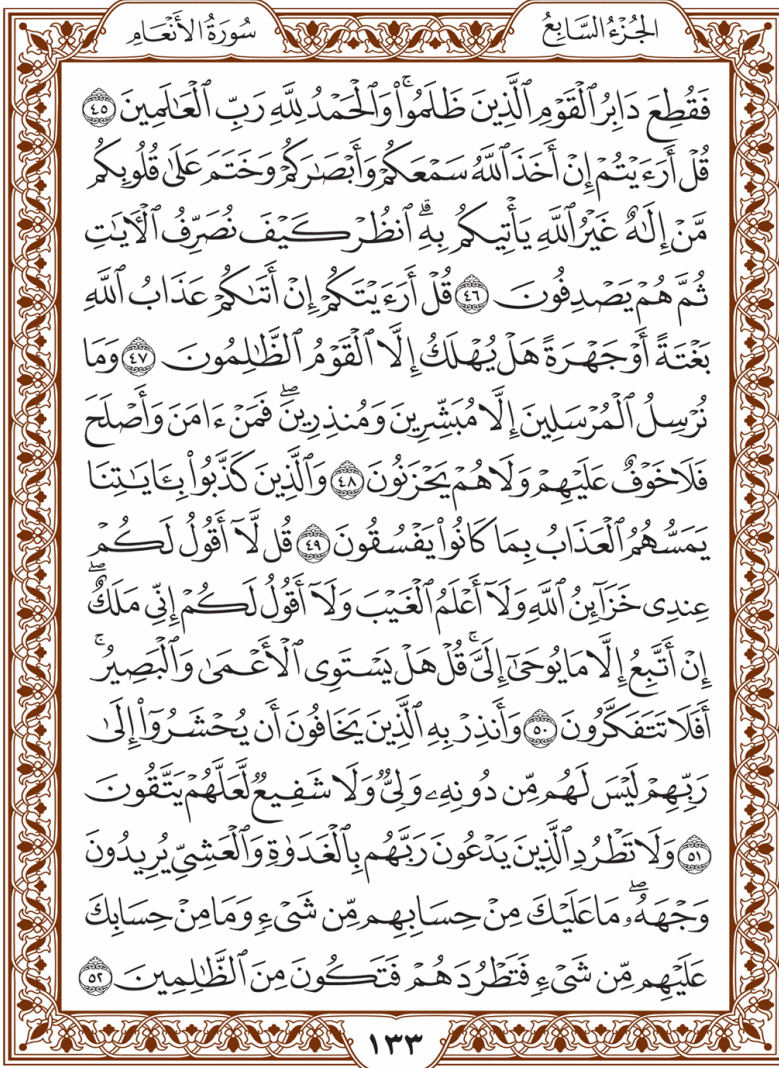 الجُزْءُ السَّابِعُ
سُورَةُ الأَنْعَامِ
فَقُطِعَ دَابِرُ ٱلْقَوْمِ ٱلَّذِينَ ظَلَمُوا۟ ۚ وَٱلْحَمْدُ لِلَّهِ رَبِّ ٱلْعَـٰلَمِينَ ٤٥
قُلْ أَرَءَيْتُمْ إِنْ أَخَذَ ٱللَّهُ سَمْعَكُمْ وَأَبْصَـٰرَكُمْ وَخَتَمَ عَلَىٰ قُلُوبِكُم
مَّنْ إِلَـٰهٌ غَيْرُ ٱللَّهِ يَأْتِيكُم بِهِ ۗ ٱنظُرْ كَيْفَ نُصَرِّفُ ٱلْـَٔايَـٰتِ
ثُمَّ هُمْ يَصْدِفُونَ ٤٦ قُلْ أَرَءَيْتَكُمْ إِنْ أَتَىٰكُمْ عَذَابُ ٱللَّهِ
بَغْتَةً أَوْ جَهْرَةً هَلْ يُهْلَكُ إِلَّا ٱلْقَوْمُ ٱلظَّـٰلِمُونَ ٤٧ وَمَا
نُرْسِلُ ٱلْمُرْسَلِينَ إِلَّا مُبَشِّرِينَ وَمُنذِرِينَ ۖ فَمَنْ ءَامَنَ وَأَصْلَحَ
فَلَا خَوْفٌ عَلَيْهِمْ وَلَا هُمْ يَحْزَنُونَ ٤٨ وَٱلَّذِينَ كَذَّبُوا۟ بِـَٔايَـٰتِنَا
يَمَسُّهُمُ ٱلْعَذَابُ بِمَا كَانُوا۟ يَفْسُقُونَ ٤٩ قُل لَّآ أَقُولُ لَكُمْ
عِندِى خَزَآئِنُ ٱللَّهِ وَلَآ أَعْلَمُ ٱلْغَيْبَ وَلَآ أَقُولُ لَكُمْ إِنِّى مَلَكٌ ۖ
إِنْ أَتَّبِعُ إِلَّا مَا يُوحَىٰٓ إِلَىَّ ۚ قُلْ هَلْ يَسْتَوِى ٱلْأَعْمَىٰ وَٱلْبَصِيرُ ۚ
أَفَلَا تَتَفَكَّرُونَ ٥٠ وَأَنذِرْ بِهِ ٱلَّذِينَ يَخَافُونَ أَن يُحْشَرُوٓا۟ إِلَىٰ
رَبِّهِمْ لَيْسَ لَهُم مِّن دُونِهِۦ وَلِىٌّ وَلَا شَفِيعٌ لَّعَلَّهُمْ يَتَّقُونَ
٥١ وَلَا تَطْرُدِ ٱلَّذِينَ يَدْعُونَ رَبَّهُم بِٱلْغَدَوٰةِ وَٱلْعَشِىِّ يُرِيدُونَ
وَجْهَهُۥ ۖ مَا عَلَيْكَ مِنْ حِسَابِهِم مِّن شَىْءٍ وَمَا مِنْ حِسَابِكَ
عَلَيْهِم مِّن شَىْءٍ فَتَطْرُدَهُمْ فَتَكُونَ مِنَ ٱلظَّـٰلِمِينَ ٥٢
١٣٣